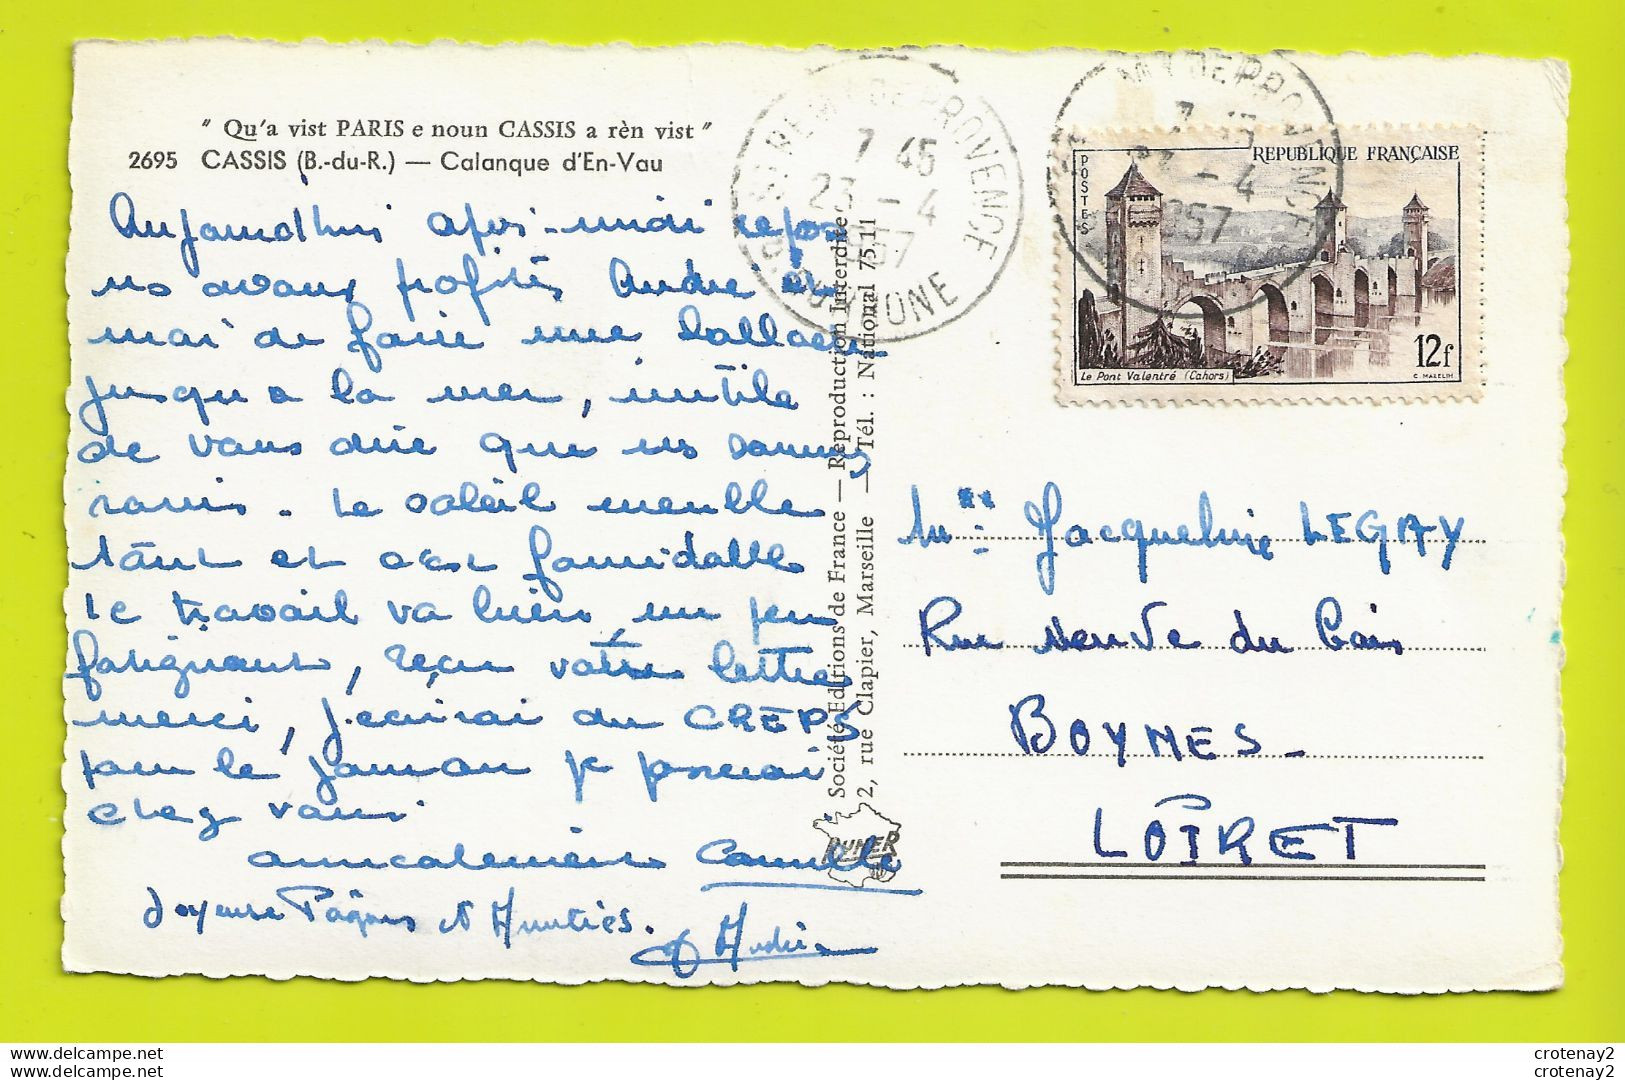 " Qu'a vist PARIS e noun CASSIS a rèn vist "
2695 CASSIS (B.-du-R.) — Calanque d'En-Vau
Aujourd'hui après-midi repos
ns avons profités André et
moi de faire une ballade
jusqu'a la mer, inutile
de vous dire que ns sommes
ravis. Le soleil
et c'est formidable
le travail va bien, un peu
fatiguant, reçu votre lettre
merci, j'écrirai au CREPS
pour le
chez vous
amicalement Camille
Joyeuse Pâques et Amitiés.
André
Société Editions de France — Reproduction Interdite
2, rue Clapier, Marseille — Tél. : National 75.11
RUMER
ST REMY DE PROVENCE
7 45
23 - 4
1957
B. DU RHONE
MY DE PROVENCE
- 4
1957
POSTES
REPUBLIQUE FRANÇAISE
Le Pont Valentré (Cahors)
12f
C. MAZELIN
Melle Jacqueline LEGAY
Rue Neuve du Gais
BOYNES -
LOIRET
www.delcampe.net
www.delcampe.net
crotenay2
crotenay2